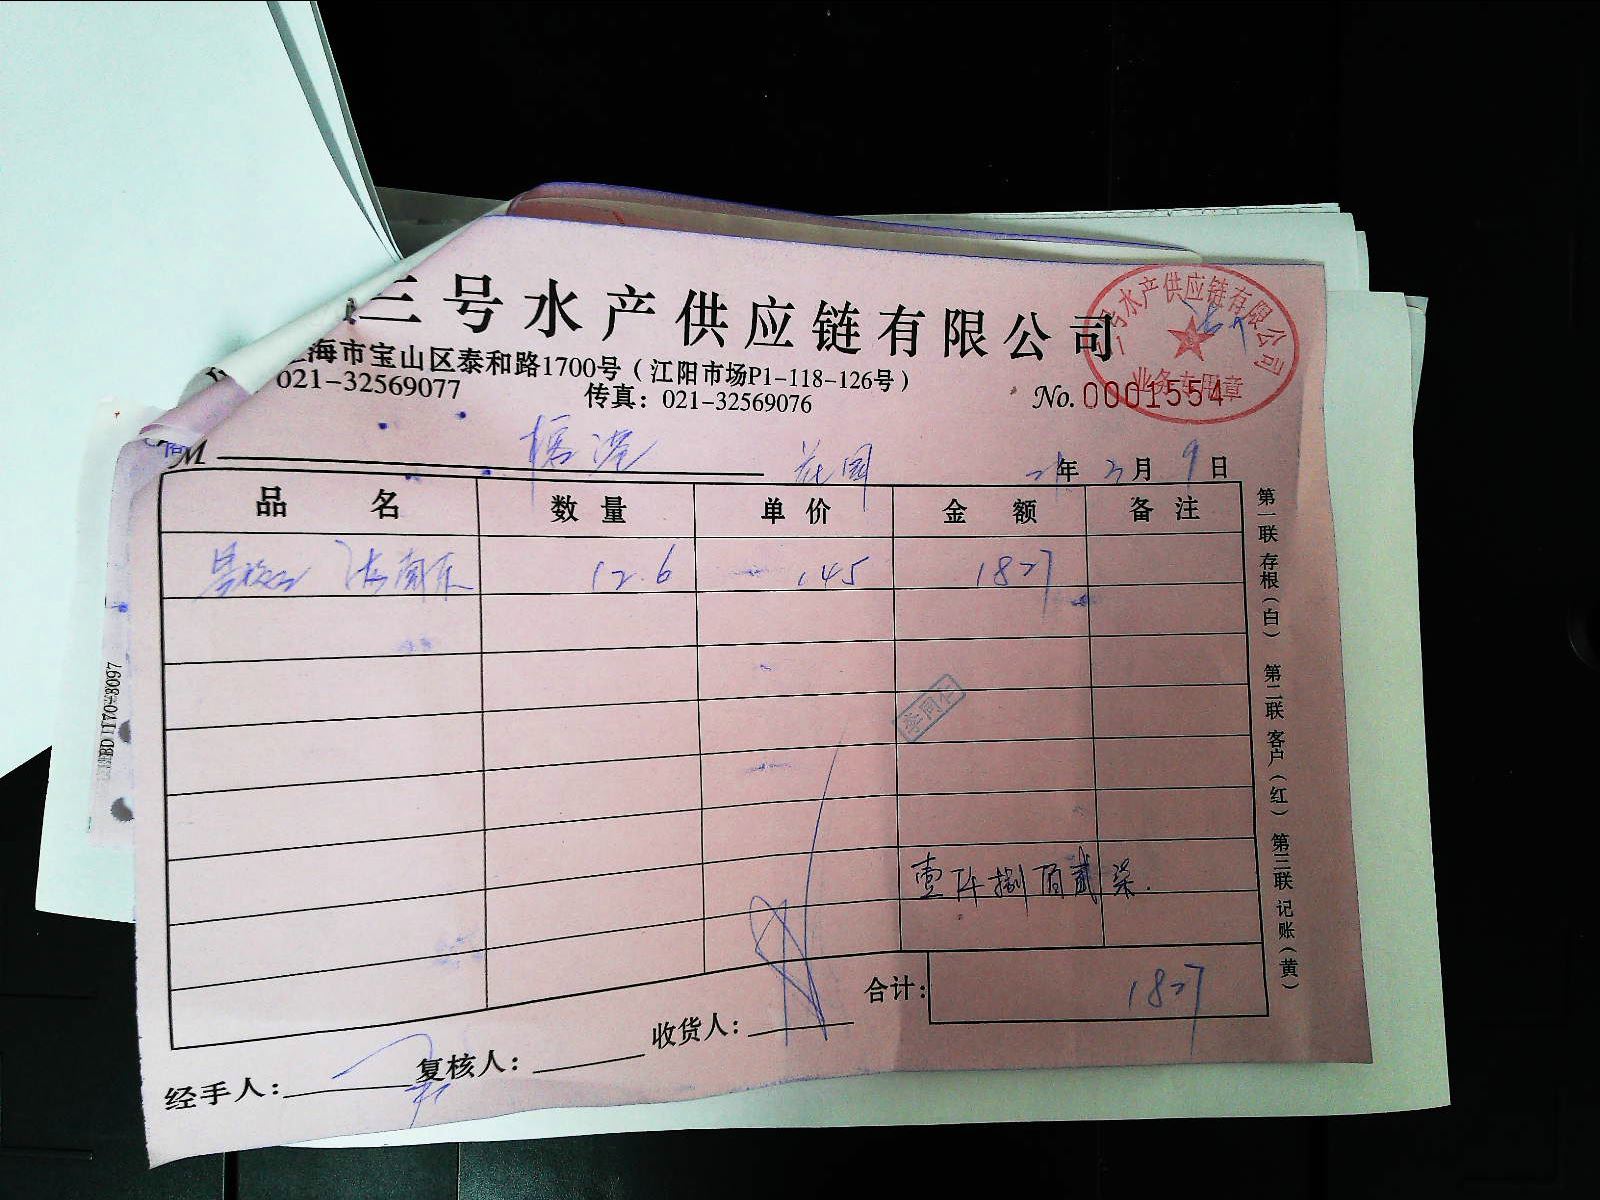 三号水产供应链有限公司
海市宝山区泰和路1700号（江阳市场P1-118-126号）
021-32569077 传真：021-32569076
No. 0001554
号水产供应链有限公司
业务专用章
M 花园 21年3月9日
品名 数量 单价 金额 备注
海南东 12.6 145 1827
李同仁
壹仟捌佰贰柒.
合计： 1827
收货人：
复核人：
经手人：
第一联存根（白） 第二联客户（红） 第三联记账（黄）